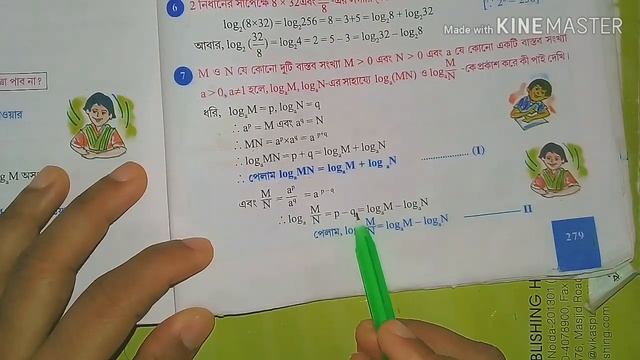 Made with KINEMASTER
6 2 নিধানের সাপেক্ষে 8 × 32 এবং
log₂(8×32) = log₂256 = 8 = 3+5 = log₂8 + log₂32
আবার, log₂(32/8) = log₂4 = 2 = 5 – 3 = log₂32 – log₂8
7 M ও N যে কোনো দুটি বাস্তব সংখ্যা M > 0 এবং N > 0 এবং a যে কোনো একটি বাস্তব সংখ্যা
a > 0, a≠1 হলে, logₐM, logₐN-এর সাহায্যে logₐ(MN) ও logₐ M/N -কে প্রকাশ করে কী পাই দেখি।
ধরি, logₐM = p, logₐN = q
∴ aᵖ = M এবং a^q = N
∴ MN = aᵖ×a^q = a^(p+q)
∴ logₐMN = p + q = logₐM + logₐN
∴ পেলাম logₐMN = logₐM + logₐN .................... (I)
এবং M/N = aᵖ/a^q = a^(p–q)
∴ logₐ M/N = p – q = logₐM – logₐN
পেলাম, logₐ M/N = logₐM – logₐN ———— II
279
পাব না?
ওয়ার
logₐM
PUBLISHING H
Noida-201301